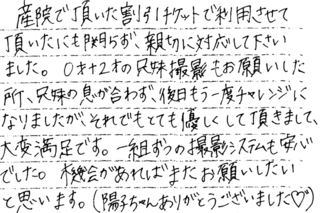 産院で頂いた割引チケットで利用させて
頂いたにも関らず、親切に対応して下さい
ました。0才+2才の兄妹撮影もお願いした
所、兄妹の息が合わず、後日もう一度チャレンジに
なりましたが、それでもとても優しくして頂きまして、
大変満足です。一組ずつの撮影システムも安心
でした。機会があればまたお願いしたい
と思います。(陽子ちゃんありがとうございました♡)